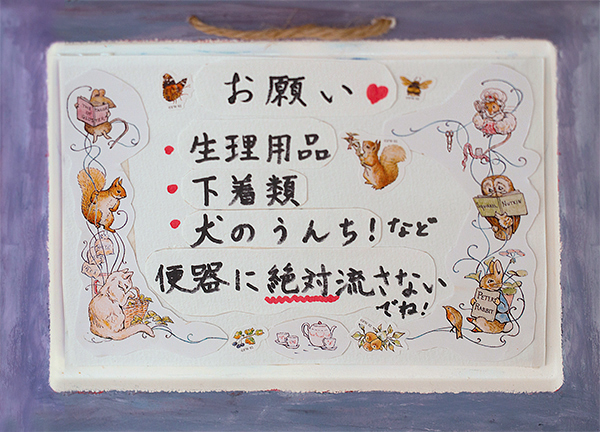 お願い
・生理用品
・下着類
・犬のうんち!など
便器に絶対流さない
でね!
SQUIRREL NUTKIN
PETER RABBIT